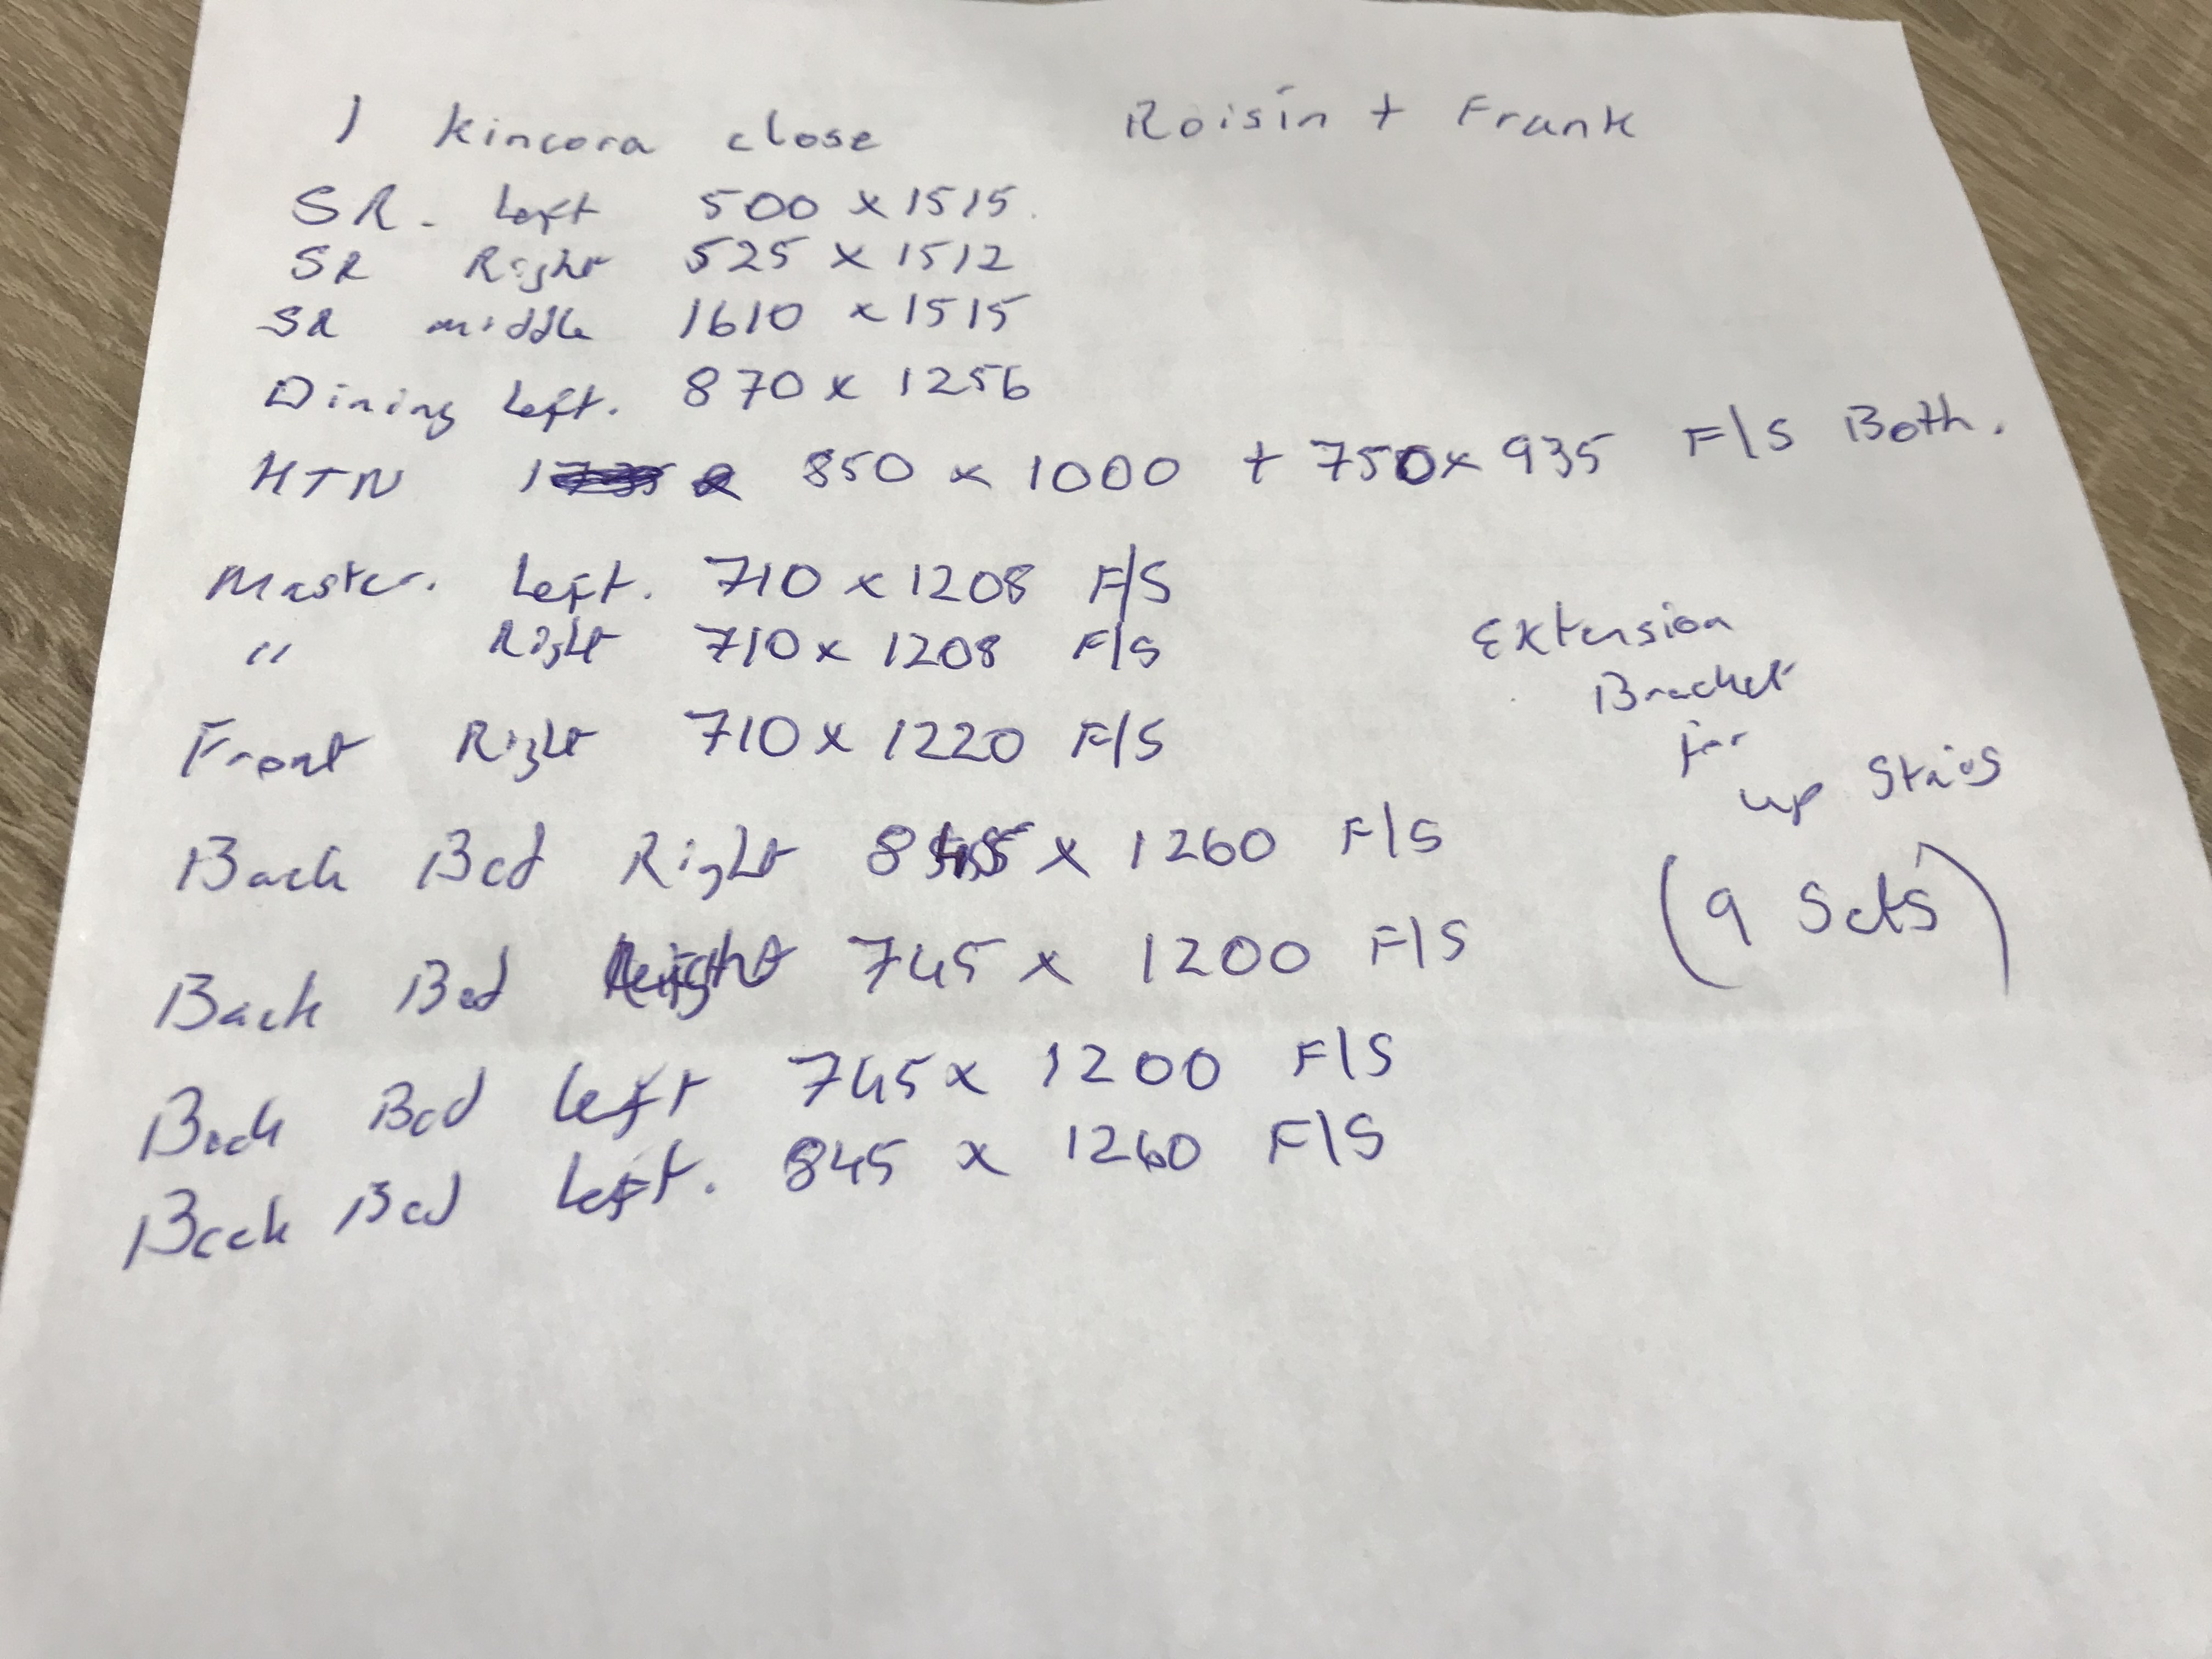 1 Kincora close Roisín + Frank
SR. Left 500 x 1515.
SR Right 525 x 1512
SR middle 1610 x 1515
Dining Left. 870 x 1256
KTN 850 x 1000 + 750 x 935 F/S Both.
Master. Left. 710 x 1208 F/S
" Right 710 x 1208 F/S
Front Right 710 x 1220 F/S
Back Bed Right x 1260 F/S
Back Bed Right 745 x 1200 F/S
Back Bed Left 745 x 1200 F/S
Back Bed Left. 845 x 1260 F/S
Extension
Bracket
for
up Stairs
(9 Sets)